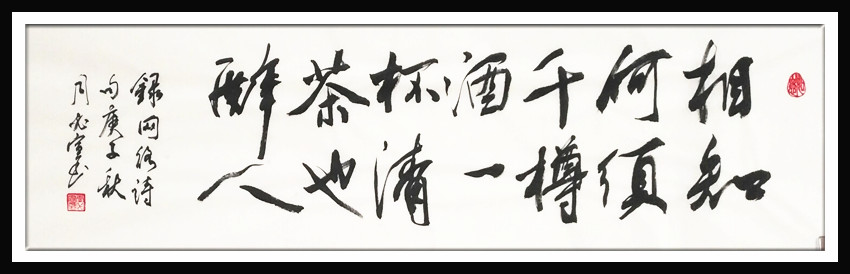 相知
何须
千樽
酒一
杯清
茶也
醉人
録网络诗
句庚子秋
月